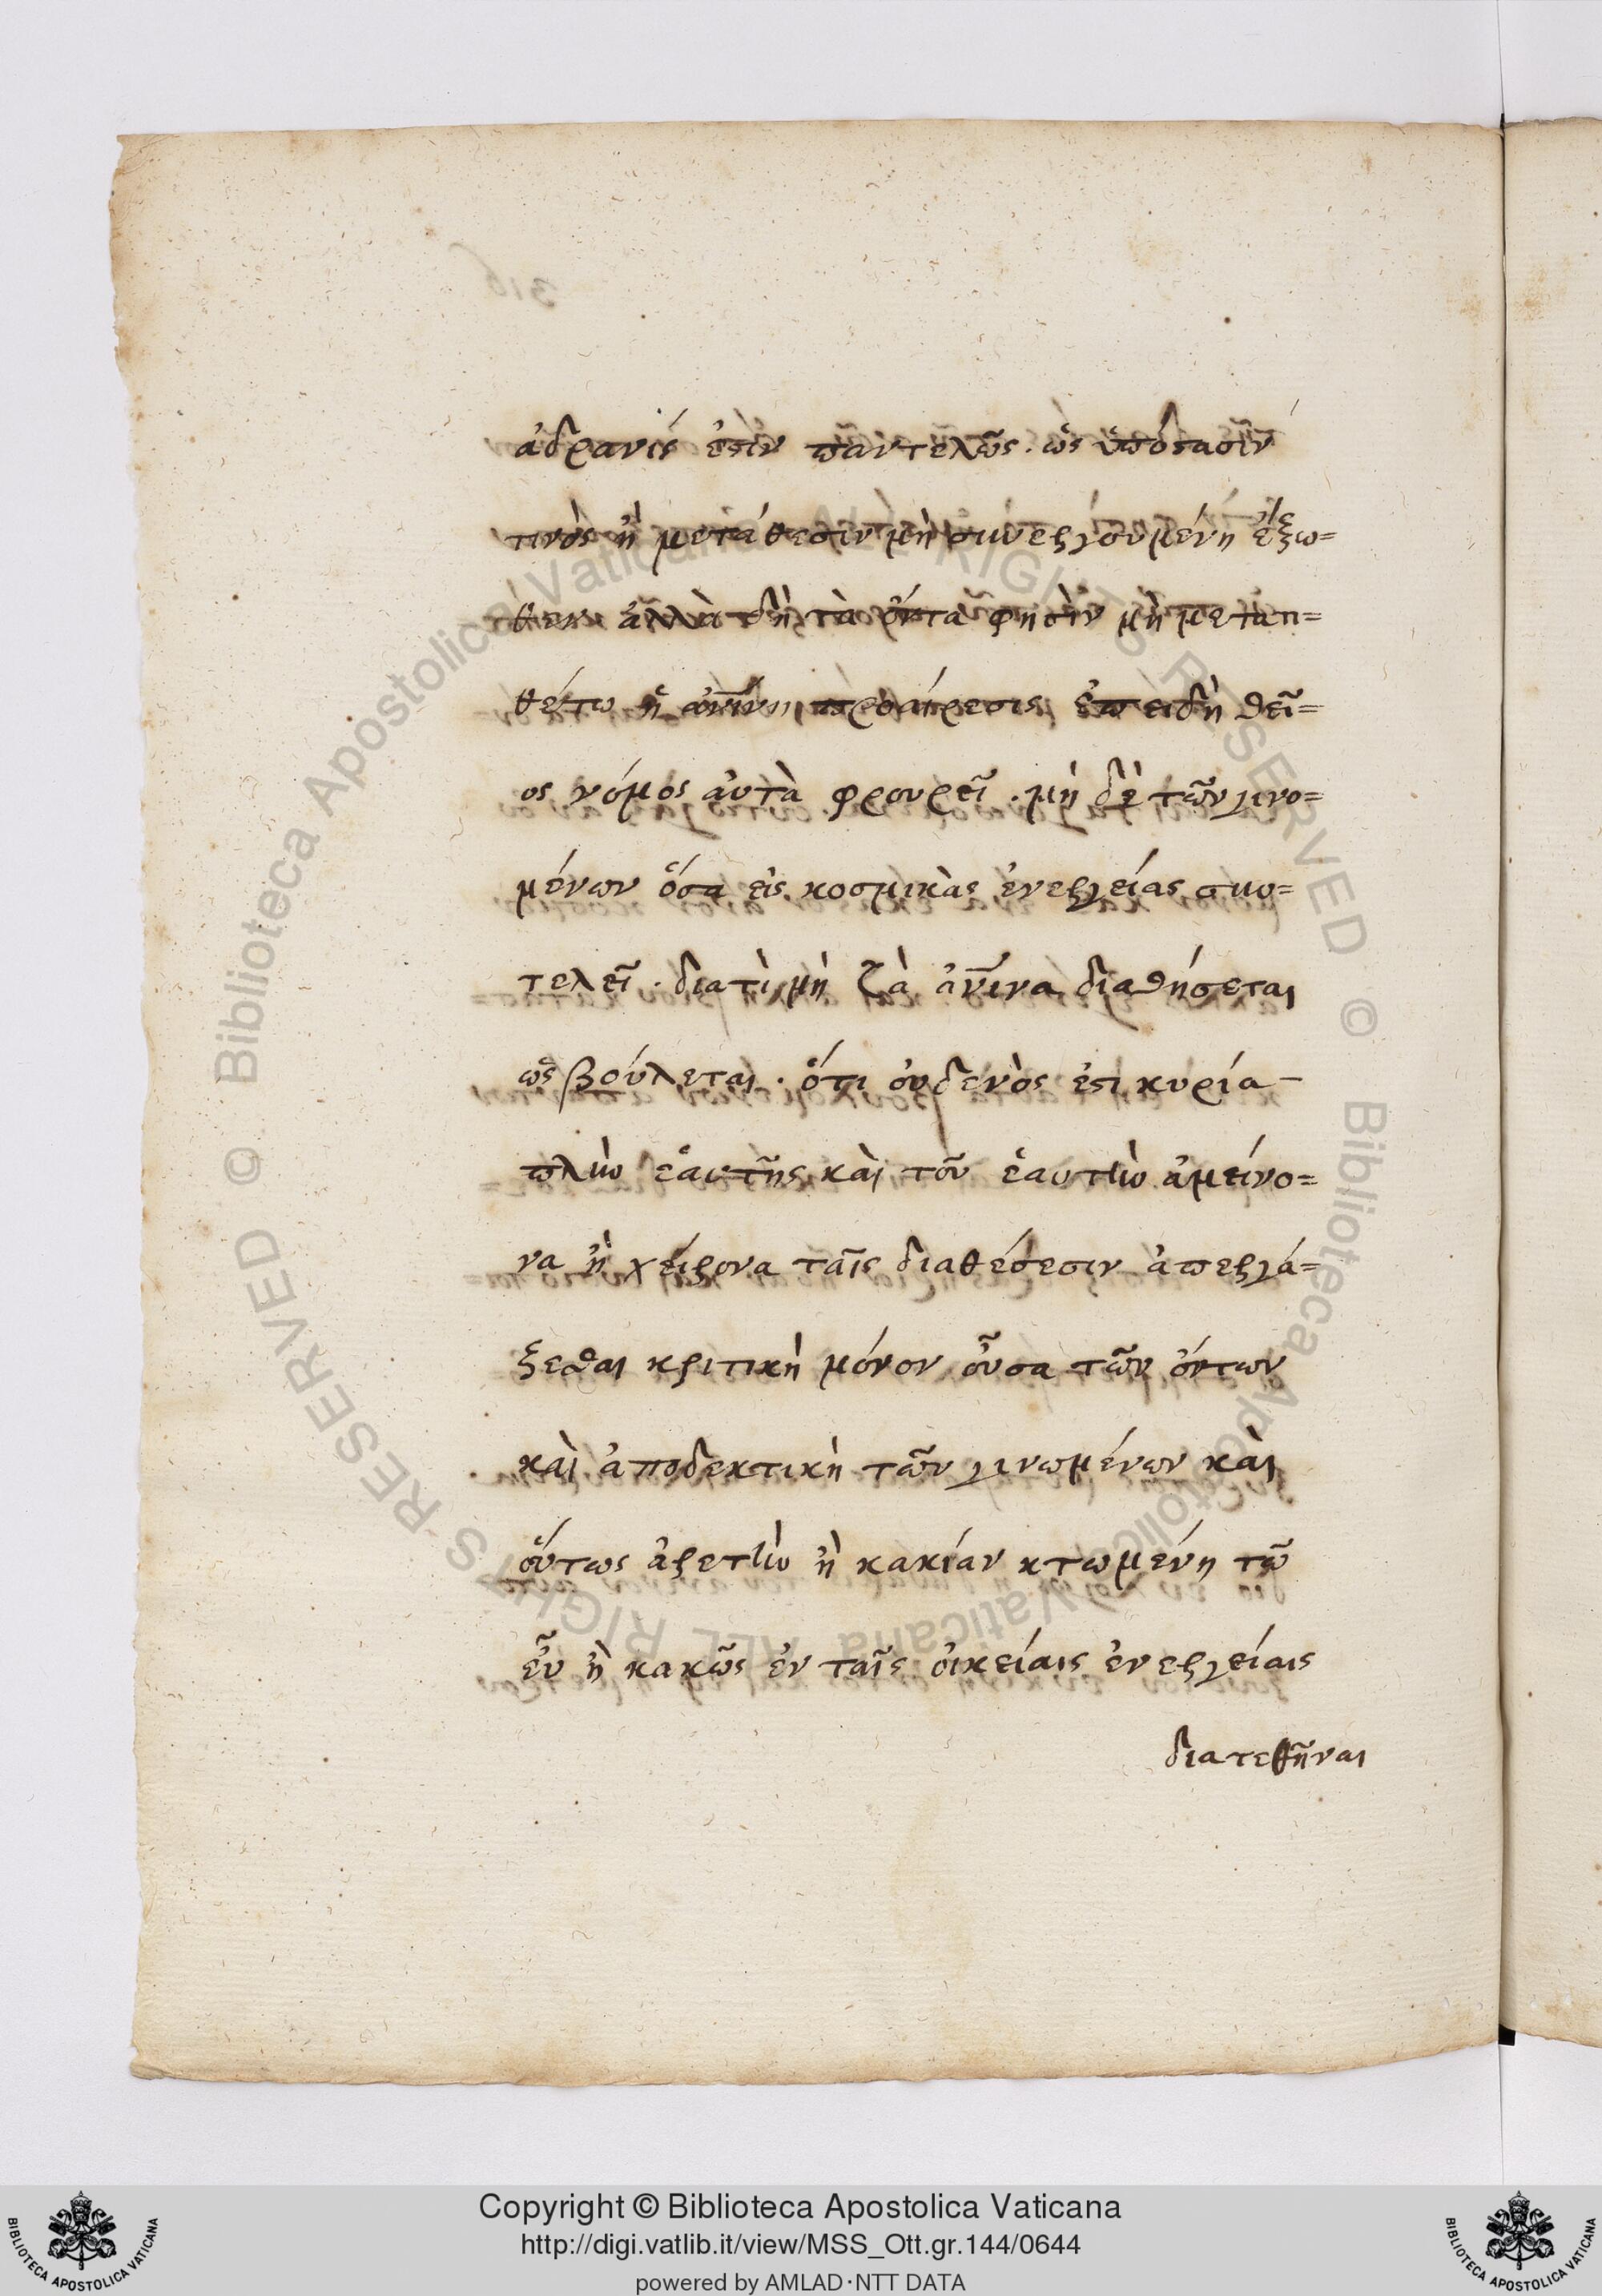 ἀδρανές ἐστιν παντελῶς. ὡς ὑπόστασίν
τινὸς ἢ μετάθεσιν μὴ συνεργουμένη ἔξω=
θεν ἀλλὰ δὴ τὰ ὄντα φησὶν μὴ μετατι=
θέτω ἡ ἀνίνη προαίρεσις ἐπειδὴ θεῖ=
ος νόμος αὐτὰ φρουρεῖ. μὴ δὲ τῶν γινο=
μένων ὅσα εἰς κοσμικὰς ἐνεργείας συν=
τελεῖ. διατὶ μὴ ζὰ ἀνινα διαθήσεται
ὡς βούλεται. ὅτι οὐδενὸς ἐστι κυρία
πλὴν ἑαυτῆς καὶ τοῦ ἑαυτὴν ἀμείνο=
να ἢ χείρονα ταῖς διαθέσεσιν ἀπεργά=
ξεσθαι κριτικὴ μόνον οὖσα τῶν ὄντων
καὶ ἀποδεκτικὴ τῶν γινωμένων καὶ
οὕτως ἀρετὴν ἢ κακίαν κτωμένη τῶ
εὖ ἢ κακῶς ἐν ταῖς οἰκείαις ἐνεργείαις
διατεθῆναι
Copyright © Biblioteca Apostolica Vaticana
http://digi.vatlib.it/view/MSS_Ott.gr.144/0644
powered by AMLAD·NTT DATA
BIBLIOTECA APOSTOLICA VATICANA
BIBLIOTECA APOSTOLICA VATICANA
© Biblioteca Apostolica Vaticana ALL RIGHTS RESERVED
© Biblioteca Apostolica Vaticana ALL RIGHTS RESERVED